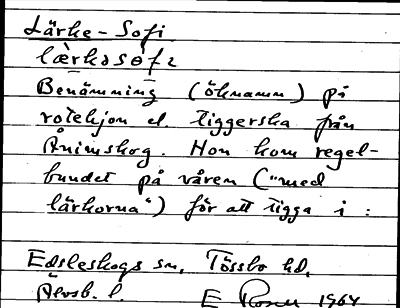 Lärke-Sofi
lærkasofi
Benämning (öknamn) på
rotehjon el. tiggerska från
Ånimskog. Hon kom regel-
bundet på våren ("med
lärkorna") för att tigga i:
Edsleskogs sn, Tössbo hd,
Älvsb. l. E 1964